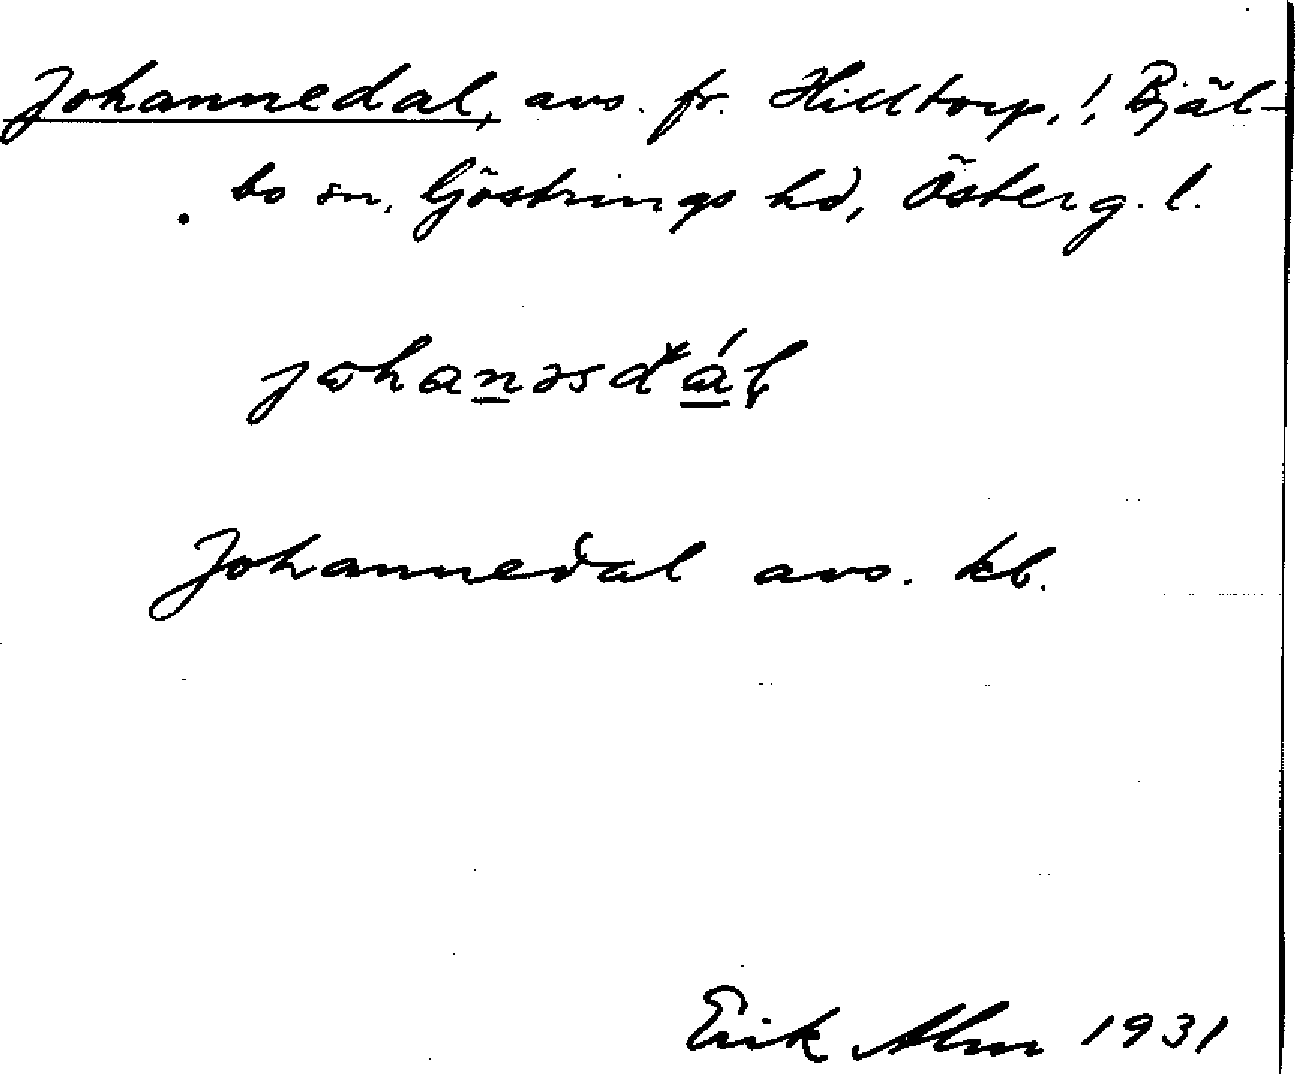 Johannedal, avs. fr. Hilltorp, !, Bjäl-
bo sn, Göstrings hd, Österg. l.
johanəsdál
Johannedal avs. kb.
Erik Alm 1931